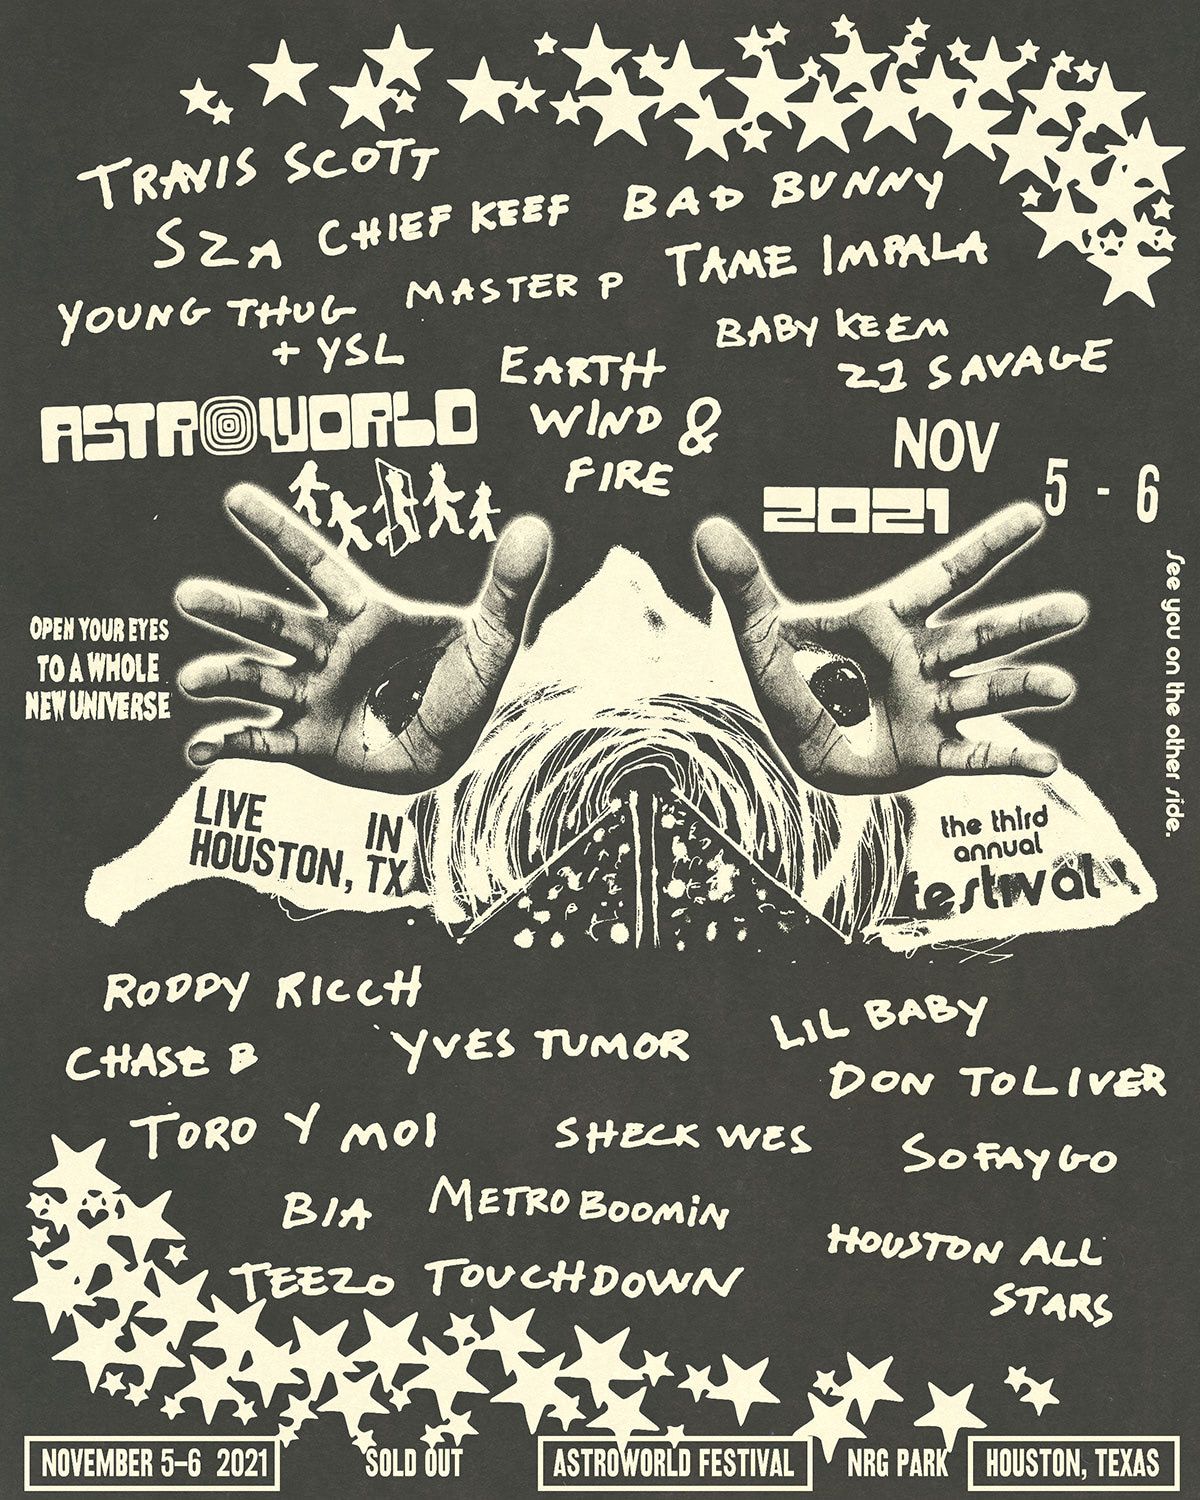 TRAVIS SCOTT
SZA CHIEF KEEF BAD BUNNY
YOUNG THUG MASTER P TAME IMPALA
+ YSL
BABY KEEM
21 SAVAGE
EARTH
WIND &
FIRE
ASTROWORLD
NOV
5 - 6
2021
See you on the other side.
OPEN YOUR EYES
TO A WHOLE
NEW UNIVERSE
LIVE IN
HOUSTON, TX
the third
annual
festival
RODDY RICCH
LIL BABY
CHASE B YVES TUMOR
DON TOLIVER
TORO Y MOI SHECK WES SOFAYGO
BIA METRO BOOMIN
HOUSTON ALL
STARS
TEEZO TOUCHDOWN
NOVEMBER 5–6 2021 SOLD OUT ASTROWORLD FESTIVAL NRG PARK HOUSTON, TEXAS